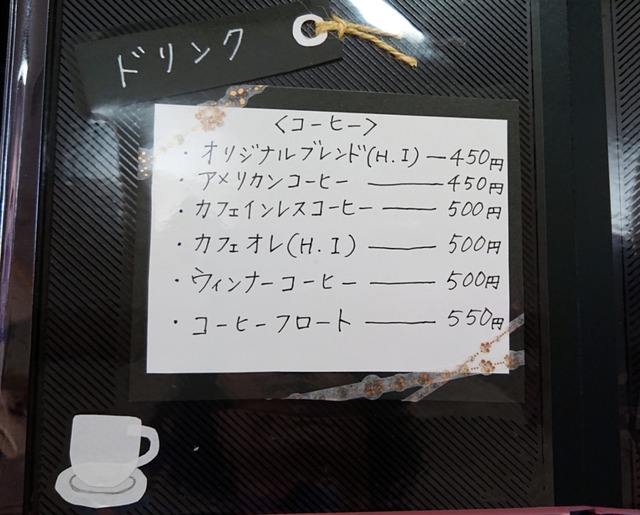 ドリンク
<コーヒー>
・オリジナルブレンド(H.I) ー 450円
・アメリカンコーヒー ── 450円
・カフェインレスコーヒー ── 500円
・カフェオレ(H.I) ── 500円
・ウィンナーコーヒー ── 500円
・コーヒーフロート ── 550円